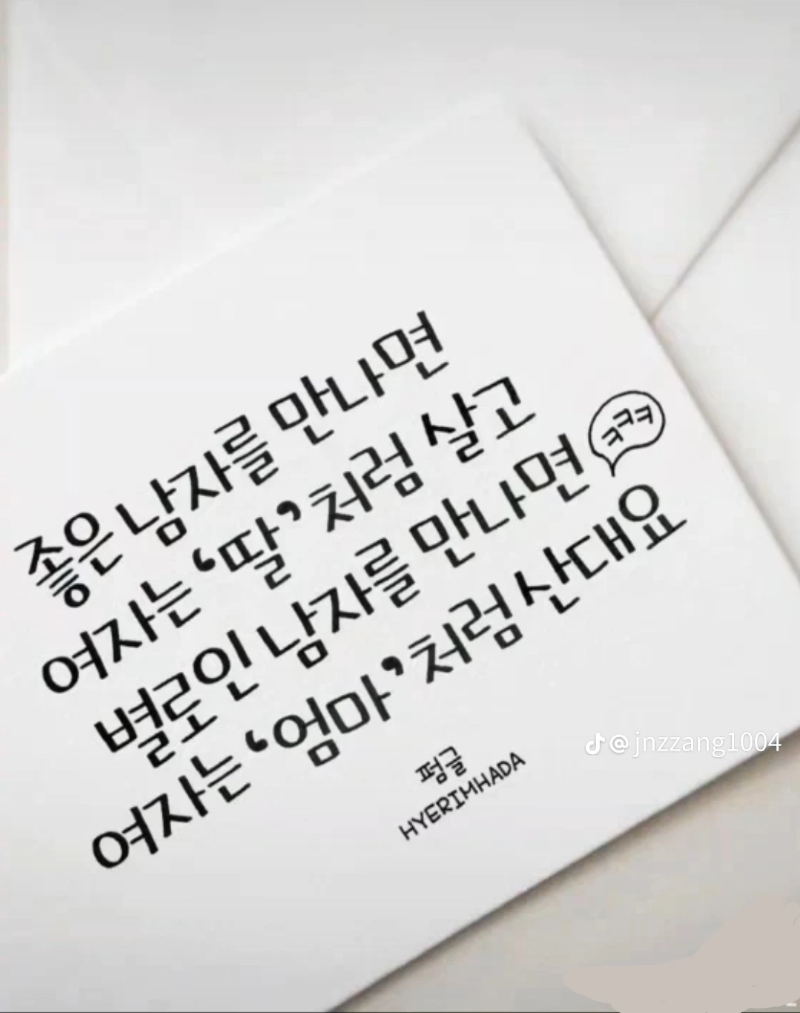 좋은 남자를 만나면
여자는 '딸'처럼 살고
별로인 남자를 만나면 ㅋㅋㅋ
여자는 '엄마'처럼 산대요
펑글
HYERIMHADA
@jnzzang1004